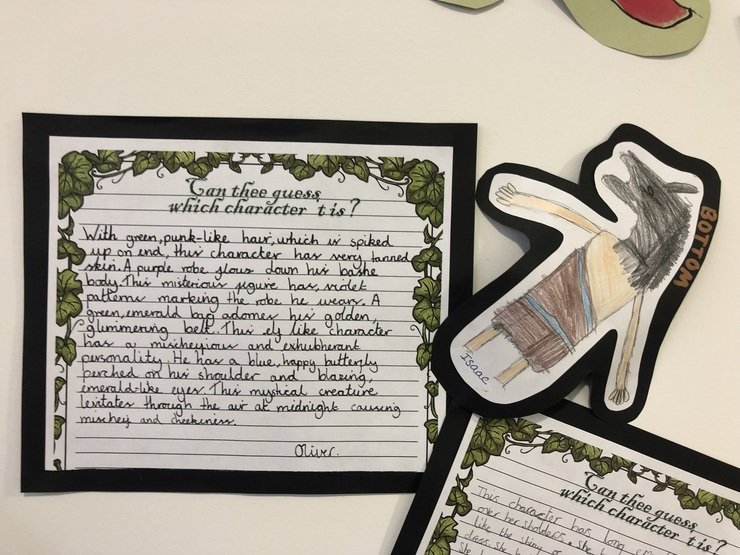 Can thee guess
which character t is?
With green, punk-like hair, which is spiked
up on end, this character has very tanned
skin. A purple robe flows down his bashe
body. This misterious figure has, violet
patterns marking the robe he wears. A
green, emerald bag adornes his golden,
glimmering belt. This elf like character
has a mischeyious and exhubherant
personality. He has a blue, happy butterfly
perched on his shoulder and blazing,
emerald-like eyes. This mystical creature
levitates through the air at midnight causing
mischey and cheekiness.
Oliver.
BOTTOM
Isaac
Can thee guess
which character t is?
This character has long
over her sholders. She
like the
dress. she